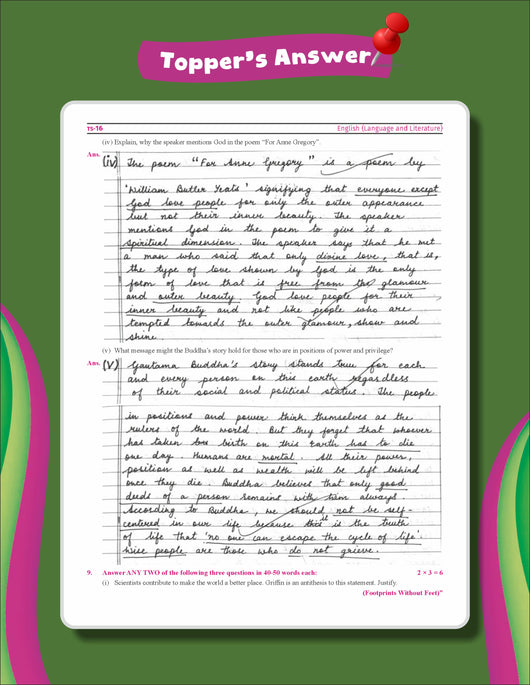 Topper's Answer
TS-16 English (Language and Literature)
(iv) Explain, why the speaker mentions God in the poem "For Anne Gregory".
Ans. (iv) The poem "For Anne Gregory" is a poem by
'William Butter Yeats' signifying that everyone except
God love people for only the outer appearance
but not their inner beauty. The speaker
mentions God in the poem to give it a
spiritual dimension. The speaker says that he met
a man who said that only divine love, that is,
the type of love shown by God is the only
form of love that is free from the glamour
and outer beauty. God love people for their
inner beauty and not like people who are
tempted towards the outer glamour, show and
shine.
(v) What message might the Buddha's story hold for those who are in positions of power and privilege?
Ans. (V) Gautama Buddha's story stands true for each
and every person on this earth regardless
of their social and political status. The people
in positions and power think themselves as the
rulers of the world. But they forget that whoever
has taken birth on this Earth has to die
one day. Humans are mortal. All their power,
position as well as wealth will be left behind
once they die. Buddha believes that only good
deeds of a person remains with him always.
According to Buddha, we should not be self-
centered in our life because it is the truth
of life that 'no one can escape the cycle of life'.
Wise people are those who do not grieve.
9. Answer ANY TWO of the following three questions in 40-50 words each: 2 × 3 = 6
(i) Scientists contribute to make the world a better place. Griffin is an antithesis to this statement. Justify.
(Footprints Without Feet)"